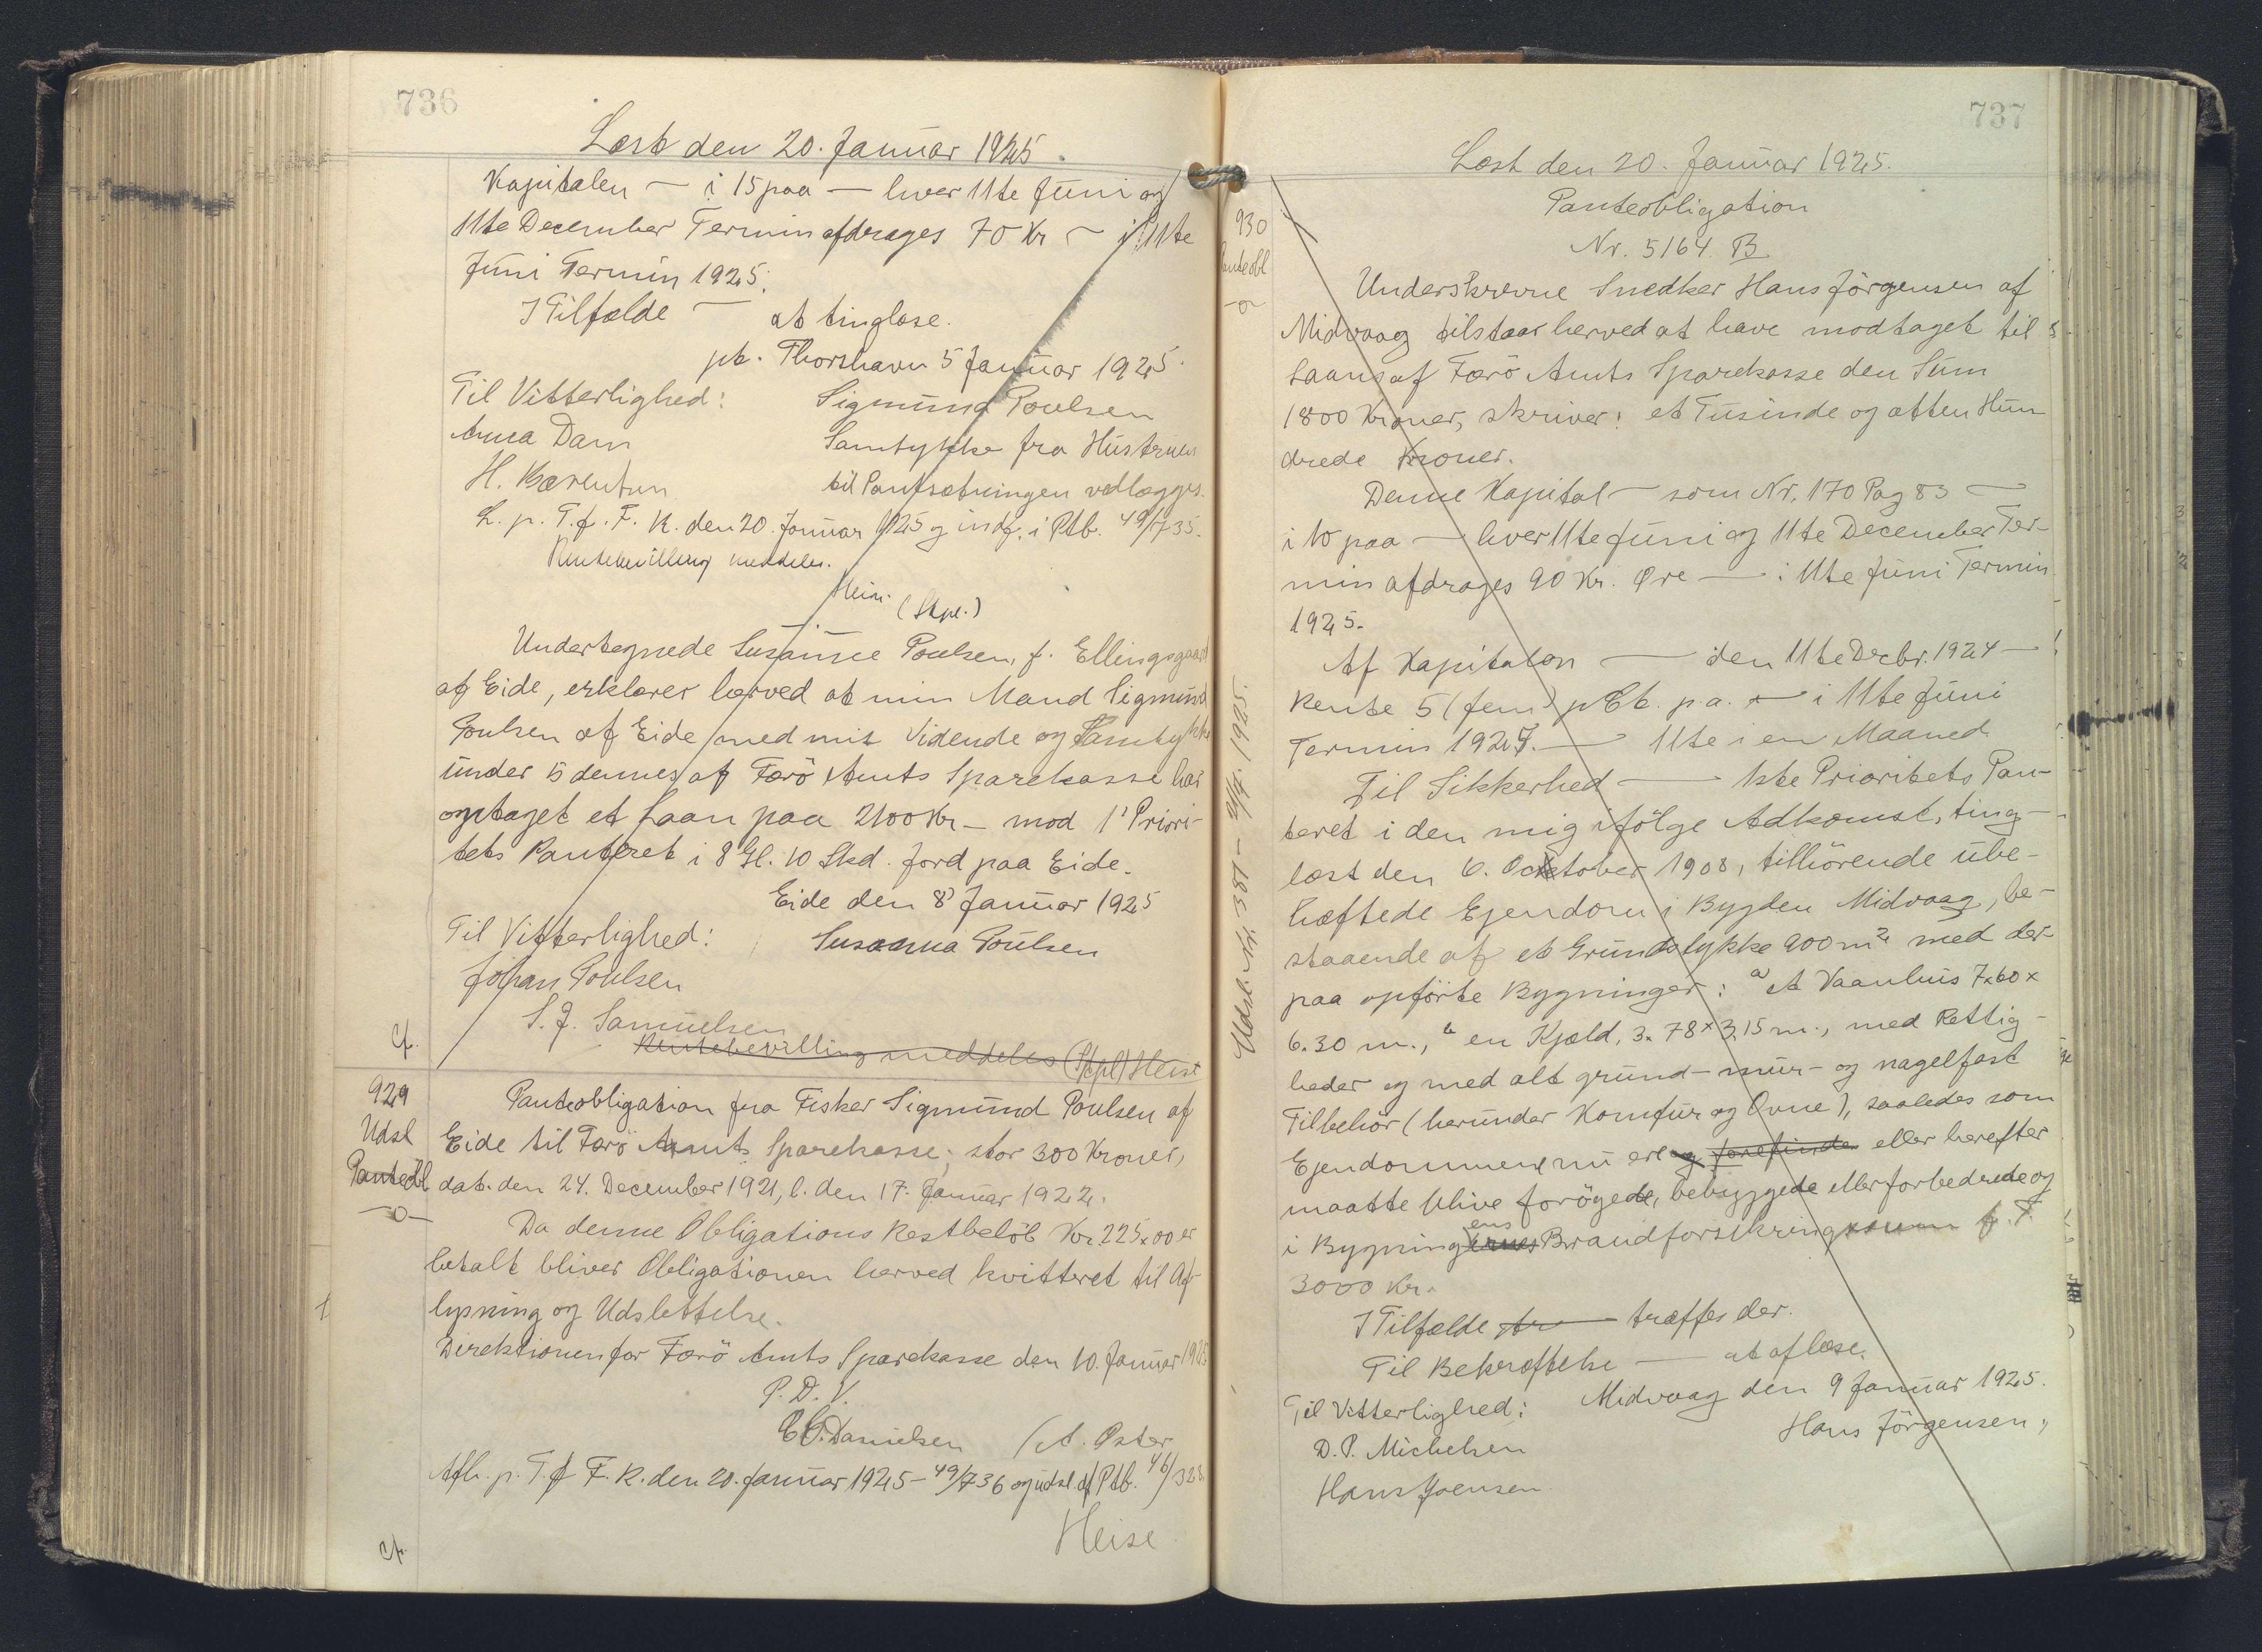 736
Læst den 20. Januar 1925.
Kapitalen — i 15 paa — hver 11te Juni og
11te December Termin afdrages 70 Kr — i 11te
Juni Termin 1925.
I Tilfælde — at tinglæse.
pt. Thorshavn 5 Januar 1925.
Til Vitterlighed: Sigmund Poulsen
Anna Dam Samtykke fra Hustruen
H. Bærentsen til Pantsætningen vedlægges.
L. p. T. f. F. K. den 20. Januar 1925 og indf. i Ptb. 49/735.
Rentebevilling meddeles.
Heise
(Stpl.)
Undertegnede Susanne Poulsen, f. Ellingsgaard
af Eide, erklærer herved at min Mand Sigmund
Poulsen af Eide med mit Vidende og Samtykke
under 5 dennes af Færö Amts Sparekasse har
optaget et Laan paa 2100 Kr — mod 1' Priori-
tets Panteret i 8 Gl. 10 Skd. Jord paa Eide.
Eide den 8' Januar 1925
Til Vitterlighed: Susanna Poulsen
Johan Poulsen
S. J. Samuelsen
cf. Rentebevilling meddeles (Stpl) Heise
929
Udsl
Panteobl
-o-
Panteobligation fra Fisker Sigmund Poulsen af
Eide til Færö Amts Sparekasse, stor 300 Kroner,
dat. den 24. December 1921, l. den 17. Januar 1922.
Da denne Obligations Restbelöb Kr. 225,00 er
betalt bliver Obligationen herved kvitteret til Af-
lysning og Udslettelse.
Direktionen for Færö Amts Sparekasse den 10. Januar 1925
P. D. V.
Danielsen / A. Öster
Afl. p. T. f F. K. den 20. Januar 1925 — 49/736 og udsl. af Ptb. 46/328.
Heise
cf.
737
Læst den 20. Januar 1925.
930
Panteobl
-o-
Panteobligation
Nr. 5164. B
Underskrevne Snedker Hans Jörgensen af
Midvaag tilstaar herved at have modtaget til
Laans af Færö Amts Sparekasse den Sum
1800 Kroner, skriver: et Tusinde og atten Hun
drede Kroner.
Denne Kapital — som Nr. 170 Pag 83 —
i 10 paa — hver 11te Juni og 11te December Ter-
min afdrages 90 Kr. Øre — i 11te Juni Termin
1925.
Af Kapitalen — den 11te Decbr. 1924 —
Rente 5 (fem) pCt. p.a. — i 11te Juni
Termin 1925. — 11te i en Maaned.
Til Sikkerhed — 1ste Prioritets Pan-
teret i den mig ifölge Adkomst, ting-
læst den 6. October 1908, tilhörende ube-
hæftede Ejendom i Bygden Midvaag, be-
staaende af et Grundstykke 900 m² med der-
paa opförte Bygninger: a et Vaanhus 7.60 x
6.30 m., b en Kjæld. 3.78 x 3.15 m., med Rettig-
heder og med alt grund- mur- og nagelfast
Tilbehör (herunder Komfur og Ovne), saaledes som
Ejendommen nu er og forefindes eller herefter
maatte blive forögede, bebyggede eller forbedrede og
ens
i Bygningernes Brandforsikringssum f. T.
3000 Kr.
I Tilfælde — træffes der.
Til Bekræftelse — at aflæse.
Til Vitterlighed: Midvaag den 9 Januar 1925.
D. P. Michelsen Hans Jörgensen,
Hans Joensen
Udsl. Nr. 381 — 2/4. 1925.